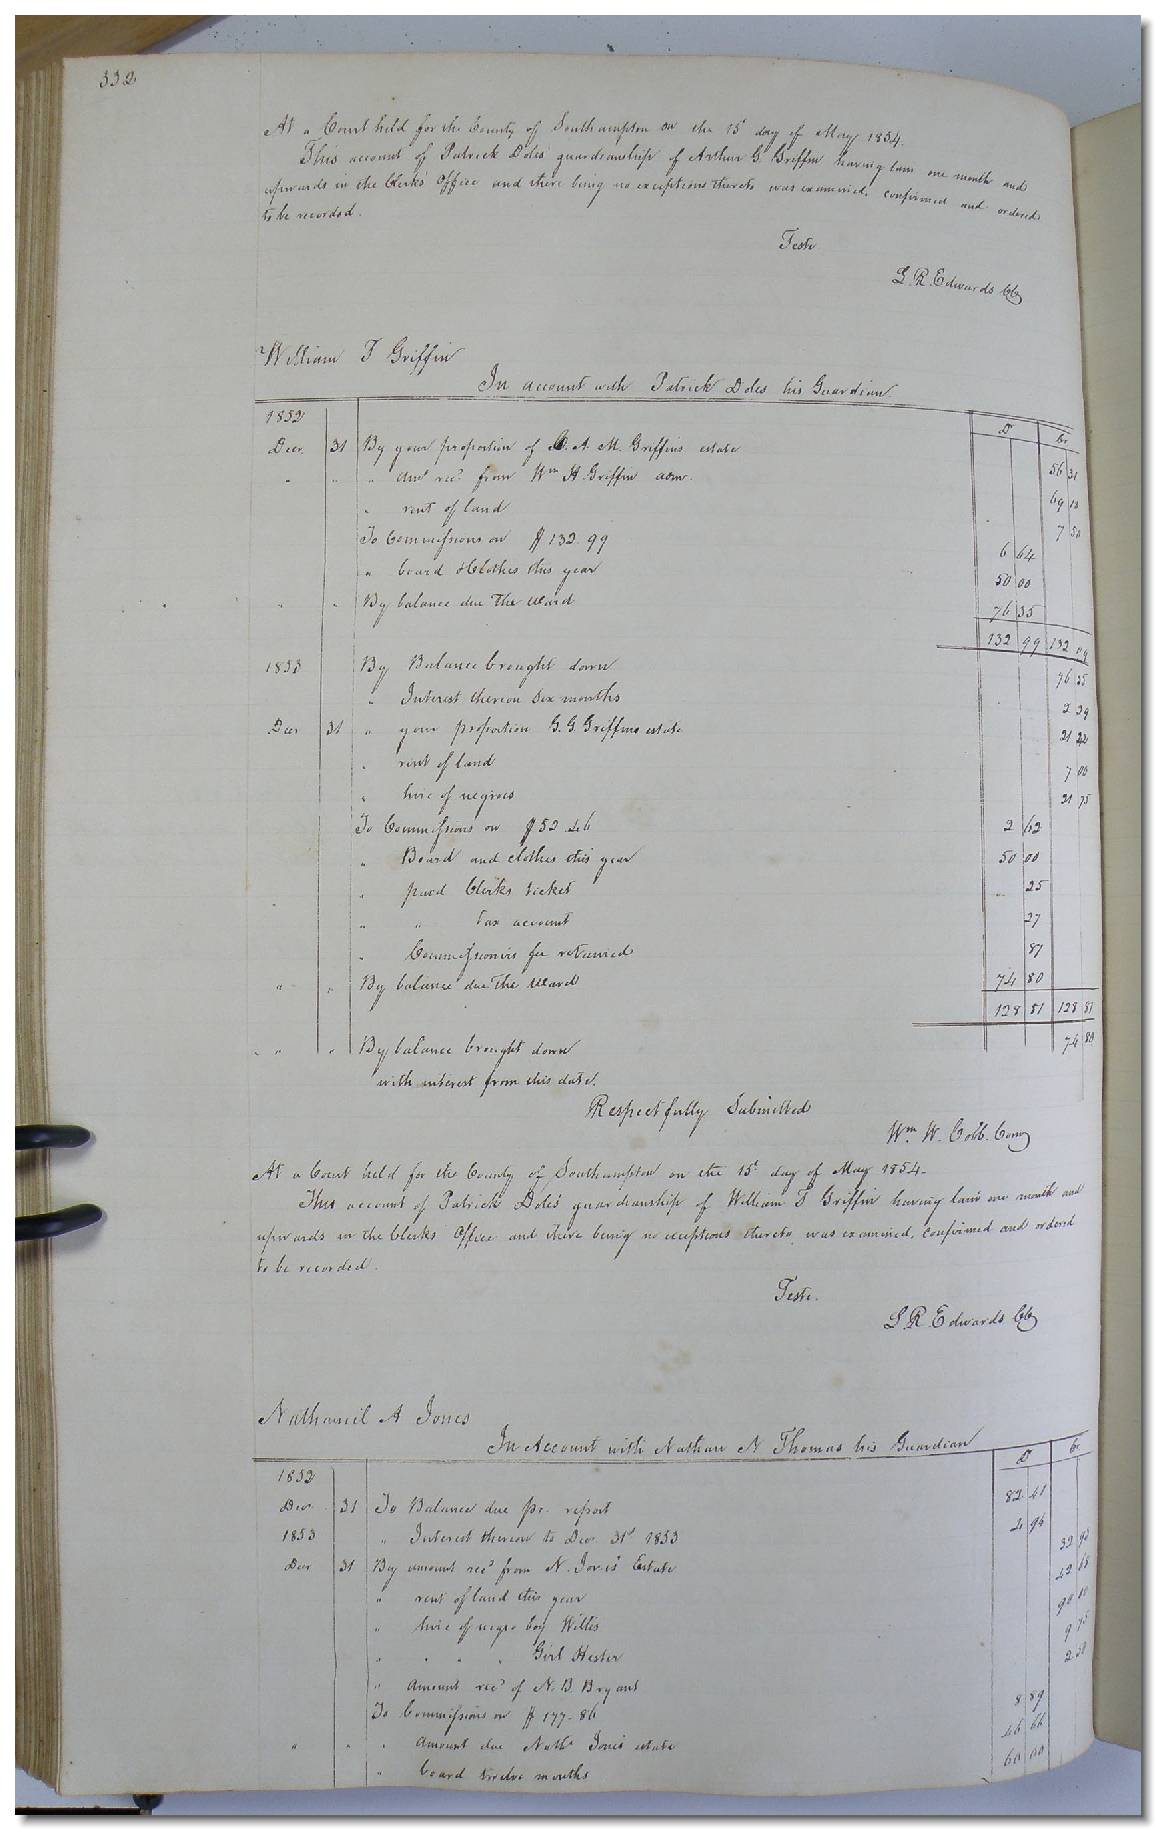 332
At a Court held for the County of Southampton on the 15t day of May 1854.
This account of Patrick Doles' guardianship of Arthur G. Griffin having lain one month and
upwards in the Clerks' Office and there being no exceptions thereto was examined, confirmed and ordered
to be recorded.
Teste
L. R. Edwards CC
William T Griffin
In account with Patrick Doles his Guardian
1852 Dr Cr
Decr 31 By your proportion of A. M. Griffins estate 56 31
" " " amt recd from Wm H. Griffin adm. 69 18
" rent of land 7 50
To Commissions on $132.99 6 64
" board & Clothes this year 50 00
" " By balance due the Ward 76 35
132 99 132 99
1853 By Balance brought down 76 35
" Interest thereon six months 2 29
Decr 31 " your proportion G. G. Griffins estate 21 42
" rent of land 7 00
" hire of negroes 21 75
To Commissions on $52.46 2 62
" Board and clothes this year 50 00
" paid Clerks ticket 25
" " Tax account 27
" Commissioners fee returned 87
" " By balance due the Ward 74 80
128 81 128 81
" " By balance brought down 74 80
with interest from this date.
Respectfully Submitted
Wm W. Cobb. Comr
At a Court held for the County of Southampton on the 15t day of May 1854.
This account of Patrick Doles' guardianship of William T Griffin having lain one month and
upwards in the Clerks Office and there being no exceptions thereto, was examined, confirmed and ordered
to be recorded.
Teste.
L R Edwards CC
Nathaniel A Jones
In Account with Nathan N Thomas his Guardian
1852 Dr Cr
Decr 31 To Balance due pr. report 82 41
1853 " Interest thereon to Dec 31st 1853 4 94
Decr 31 By amount recd from N. Jones' Estate 32 93
" rent of land this year 42 68
" hire of negro boy Willis 90 00
" " " " Girl Hester 9 75
" Amount recd of N. B. Bryant 2 50
To Commissions on $177.86 8 89
" " " Amount due Nathl Jones estate 46 66
" board twelve months 60 00